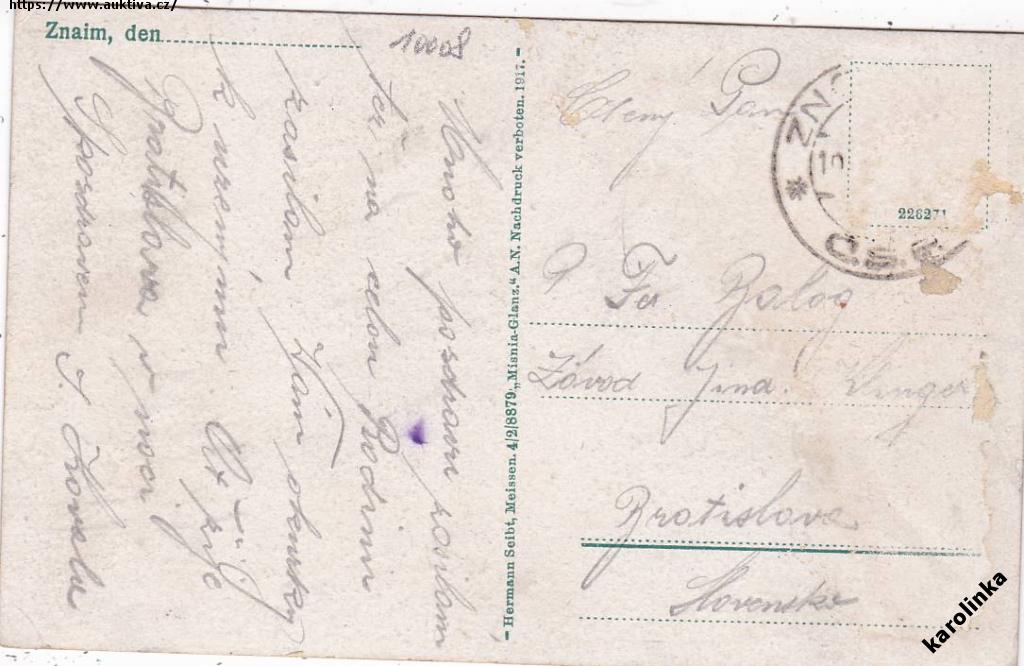 https://www.auktiva.cz/
Znaim, den
10008
Mnoho pozdravu zasilam
též na celou Rodinu
zasilam Vám okurky
k
Bratislava
S pozdravem J.
- Hermann Seibt, Meissen. 4/2/8879, „Misnia-Glanz." A.N. Nachdruck verboten. 1917. -
Ctěný Pán
P Fr Balog
Závod Jind.
Bratislava
Slovensko
* ZN
Č.S.R.
226271
karolinka